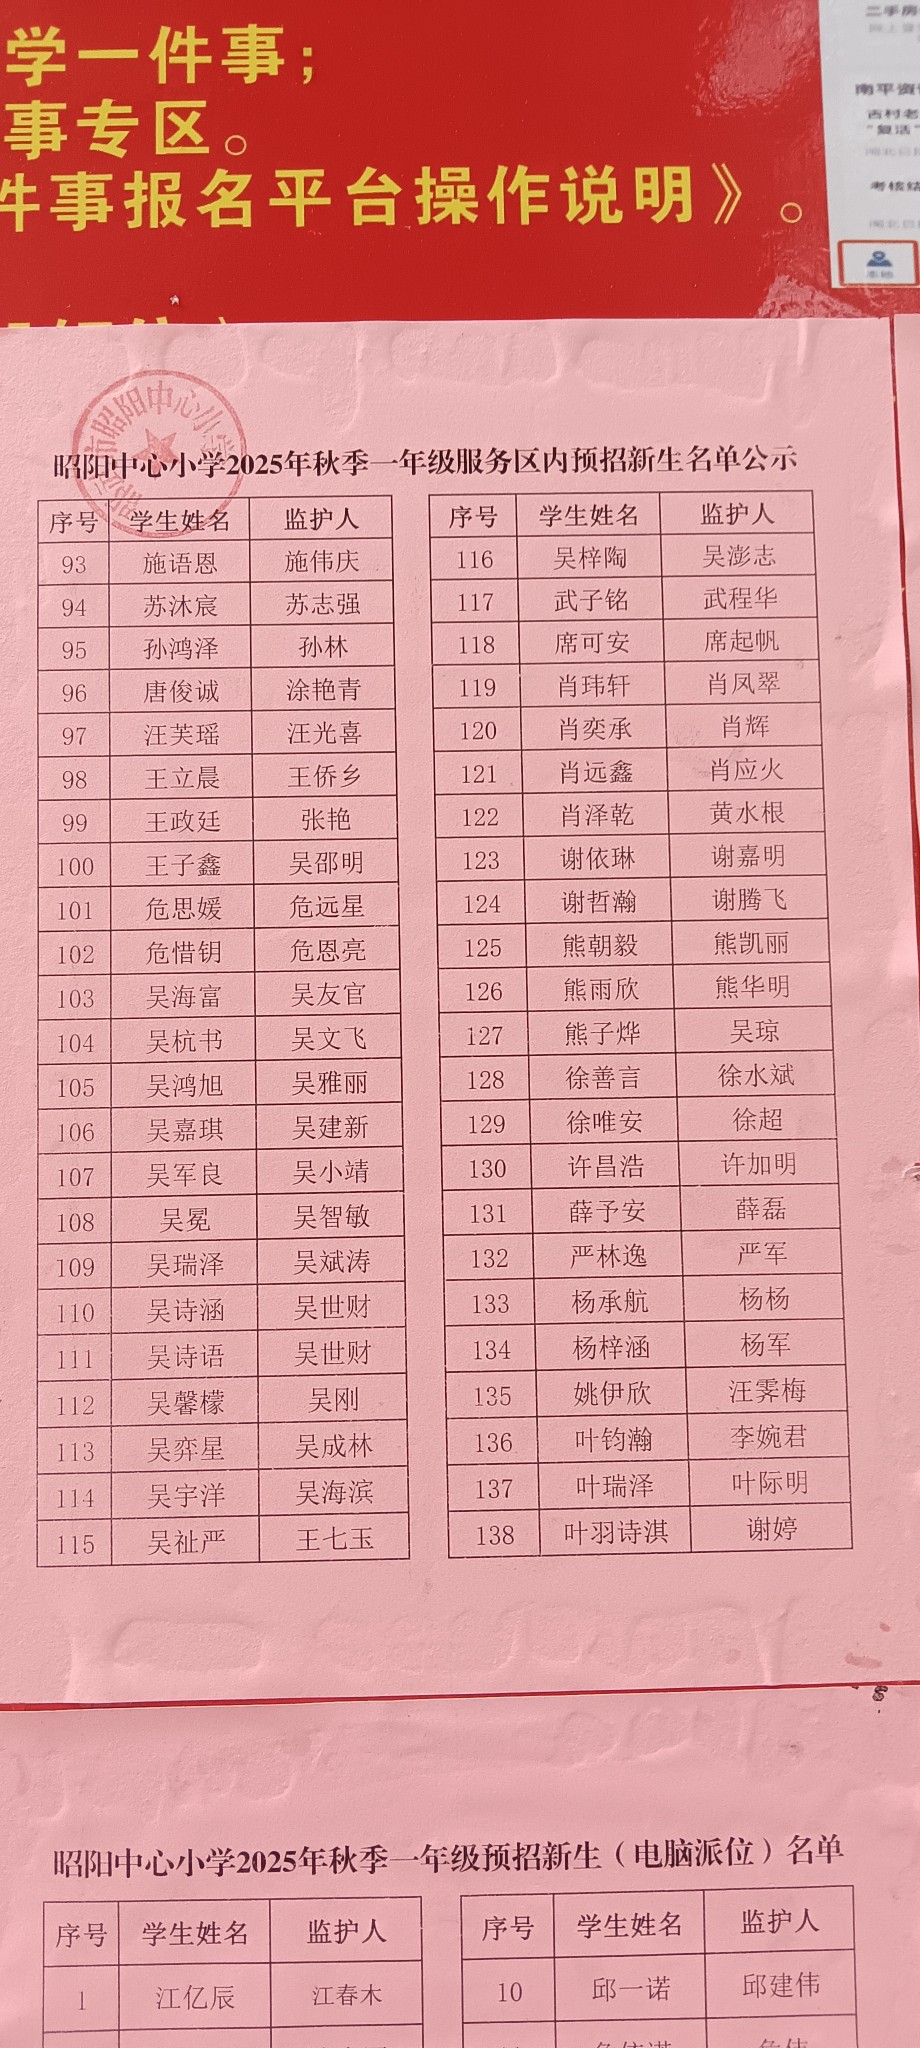 学一件事；
事专区。
件事报名平台操作说明》。
二手房
南平资
古村老
“复活”
考核结
本地
昭阳中心小学
昭阳中心小学2025年秋季一年级服务区内预招新生名单公示
序号 学生姓名 监护人
93 施语恩 施伟庆
94 苏沐宸 苏志强
95 孙鸿泽 孙林
96 唐俊诚 涂艳青
97 汪芙瑶 汪光喜
98 王立晨 王侨乡
99 王政廷 张艳
100 王子鑫 吴邵明
101 危思媛 危远星
102 危惜钥 危恩亮
103 吴海富 吴友官
104 吴杭书 吴文飞
105 吴鸿旭 吴雅丽
106 吴嘉琪 吴建新
107 吴军良 吴小靖
108 吴冕 吴智敏
109 吴瑞泽 吴斌涛
110 吴诗涵 吴世财
111 吴诗语 吴世财
112 吴馨檬 吴刚
113 吴弈星 吴成林
114 吴宇洋 吴海滨
115 吴祉严 王七玉
序号 学生姓名 监护人
116 吴梓陶 吴澎志
117 武子铭 武程华
118 席可安 席起帆
119 肖玮轩 肖凤翠
120 肖奕承 肖辉
121 肖远鑫 肖应火
122 肖泽乾 黄水根
123 谢依琳 谢嘉明
124 谢哲瀚 谢腾飞
125 熊朝毅 熊凯丽
126 熊雨欣 熊华明
127 熊子烨 吴琼
128 徐善言 徐水斌
129 徐唯安 徐超
130 许昌浩 许加明
131 薛予安 薛磊
132 严林逸 严军
133 杨承航 杨杨
134 杨梓涵 杨军
135 姚伊欣 汪霁梅
136 叶钧瀚 李婉君
137 叶瑞泽 叶际明
138 叶羽诗淇 谢婷
昭阳中心小学2025年秋季一年级预招新生（电脑派位）名单
序号 学生姓名 监护人
1 江亿辰 江春木
序号 学生姓名 监护人
10 邱一诺 邱建伟